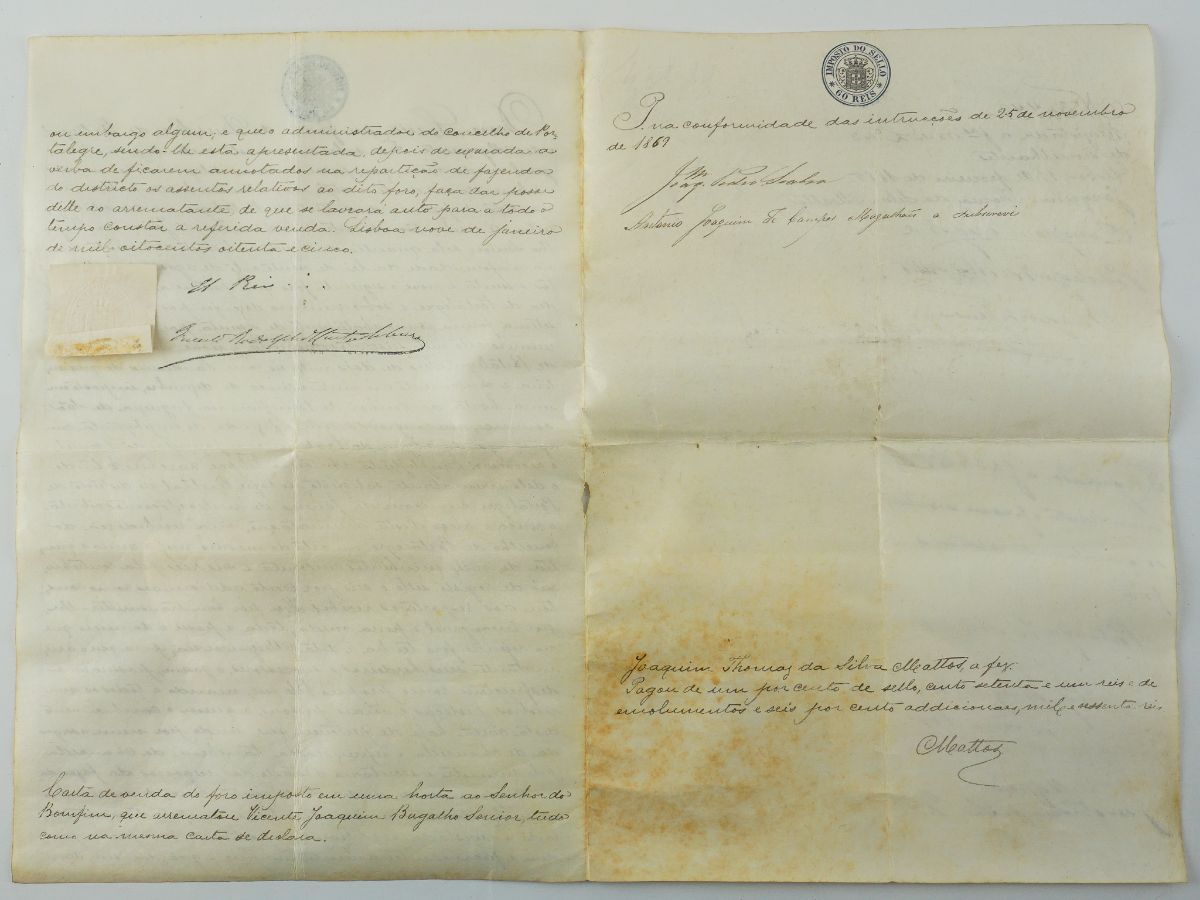 ou embargo algum; e que o administrador do concelho de Por
talegre, sendo-lhe esta apresentada, depois de exarada a
verba de ficarem annotados na repartição de fazenda
do districto os assentos relativos ao dito foro, faça dar posse
delle ao arrematante, de que se lavrará auto para a todo o
tempo constar a referida venda. Lisboa nove de janeiro
de mil oitocentos oitenta e cinco.
El Rei
Carta de venda do foro imposto em uma horta ao Senhor do
Bomfim, que arrematou Vicente Joaquim Bugalho Senior, tudo
como na mesma carta se declara.
IMPOSTO DO SELLO
60 REIS
P. na conformidade das intrucções de 25 de novembro
de 1869
Joaqm Pedro Seabra
Antonio Joaquim de Campos Magalhães a subscrevi
Joaquim Thomaz da Silva Mattos, a fez.
Pagou de um por cento de sello, cento setenta e um reis e de
emolumentos e seis por cento addicionaes, mil e sessenta reis
Mattos